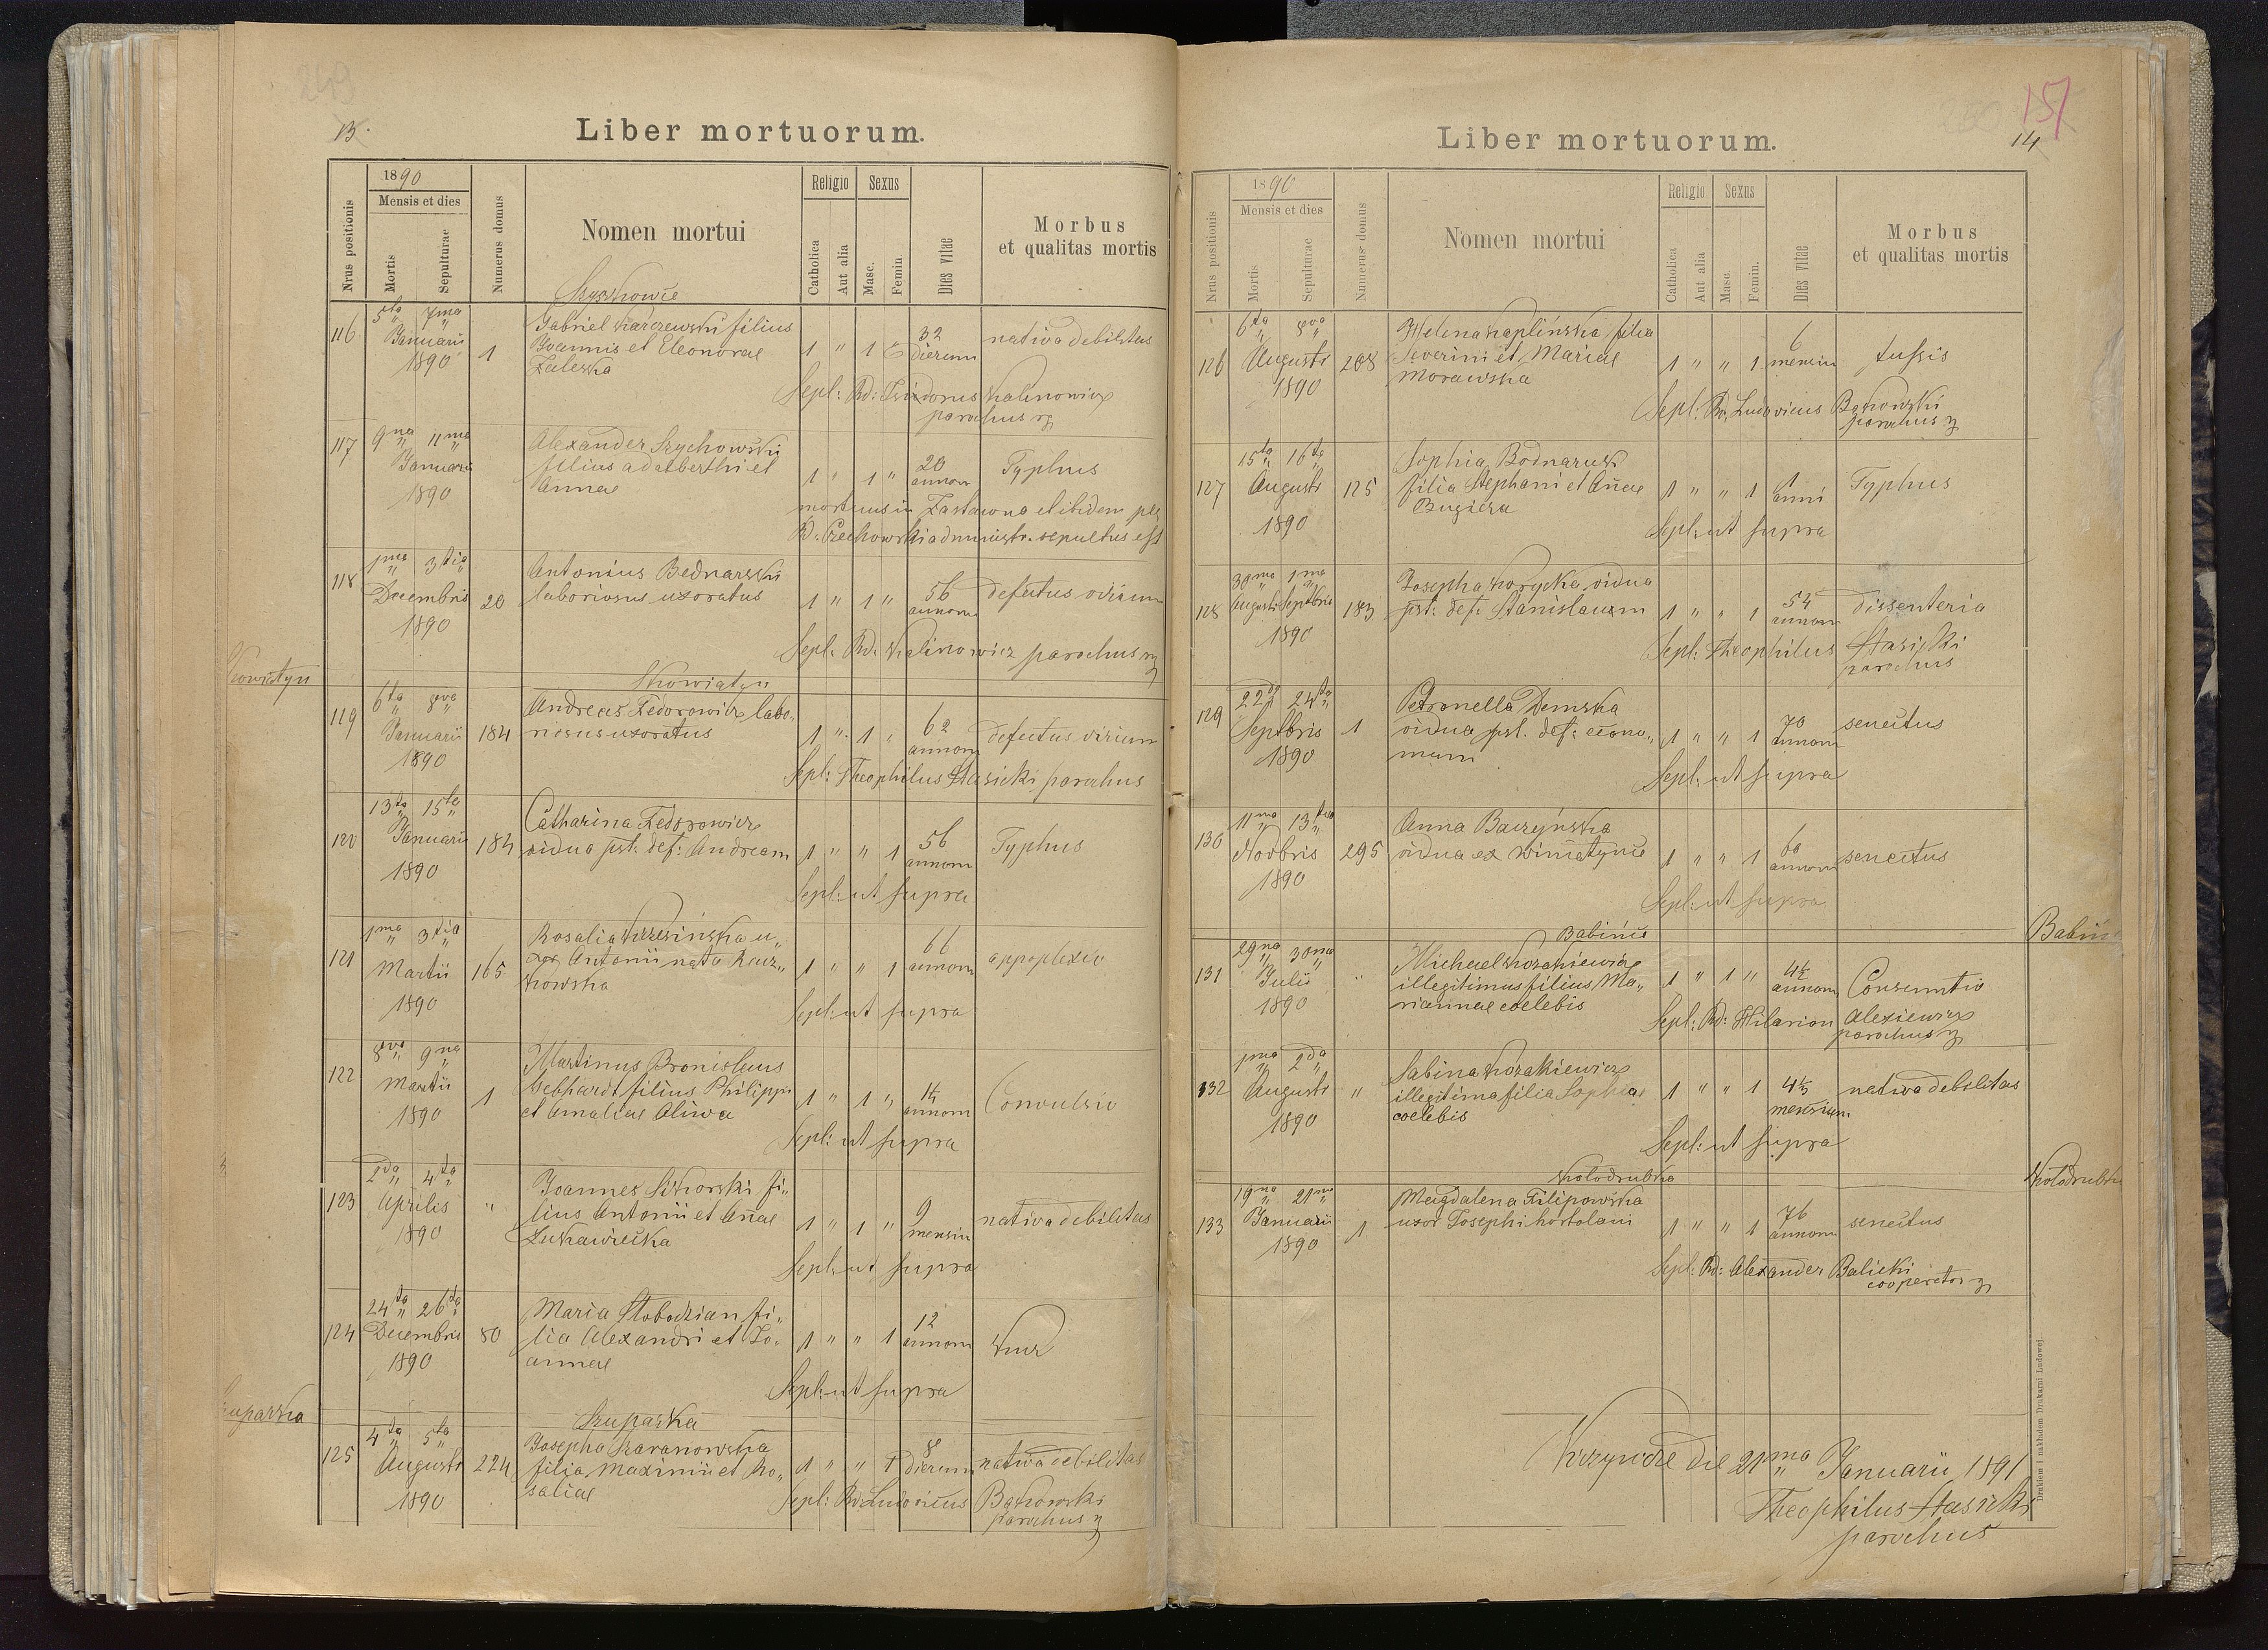 13.
Liber mortuorum.
Nrus positionis
1890
Mensis et dies
Mortis
Sepulturae
Numerus domus
Nomen mortui
Religio
Catholica
Aut alia
Sexus
Masc.
Femin.
Dies vitae
Morbus
et qualitas mortis
Szyszkowce
116. 5ta 7ma Januarii 1890 1
Gabriel Karczewski filius
Joannis et Eleonorae
Zaleska
1 " 1 " 32 dierum nativa debilitas
Sepl: Rd: Isidorus Kalinowicz
parochus
117 9na 11ma Januarii 1890
Alexander Szychowski
filius Adalberthi et
Annae
1 " 1 " 20 annor Typhus
mortuus in Zastawna et ibidem per
R. Czechowski administr. sepultus est
118 1ma 3tia Decembris 1890 20
Antonius Bednarski
laboriosus uxoratus
1 " 1 " 56 annorum defectus virium
Sepl: Rd: Kalinowicz parochus
Skowiatyn
Skowiatyn
119 6ta 8va Januarii 1890 184
Andreas Fedorowicz labo-
riosus uxoratus
1 " 1 " 62 annom defectus virium
Sepl: Theophilus Stasicki parochus
120 13ta 15ta Januarii 1890 184
Catharina Fedorowicz
vidua pst: def: Andream
1 " " 1 56 annom Typhus
Sepl: ut supra
121 1ma 3tia Martii 1890 165
Rosalia Krzesinska u-
xor Antonii nata Racz-
kowska
1 " " 1 66 annom appoplexia
Sepl: ut supra
122 8va 9na Martii 1890 1
Martinus Bronislaus
Gebhardt filius Philippi
et Amaliae Oliwa
1 " 1 " annom Convulsio
Sepl: ut supra
123 2da 4ta Aprilis 1890 "
Joannes Sikorski fi-
lius Antonii et Añae
Zukawiecka
1 " 1 " 9 mensiu nativa debilitas
Sepl: ut supra
124 24ta 26ta Decembris 1890 80
Maria Slobodzian fi-
lia Alexandri et Jo-
annae
1 " " 1 12 annom
Sepl: ut supra
Szuparka
Szuparka
125 4ta 5ta Augusti 1890 224
Josepha Baranowska
filia Maximii et Ro-
saliae
1 " " 1 8 dierum nativa debilitas
Sepl: Rd: Ludovicus Bakowski
parochus
157
14
Liber mortuorum.
Nrus positionis
1890
Mensis et dies
Mortis
Sepulturae
Numerus domus
Nomen mortui
Religio
Catholica
Aut alia
Sexus
Masc.
Femin.
Dies vitae
Morbus
et qualitas mortis
126 6ta 8va Augusti 1890 208
Helena Kaplińska filia
Severini et Mariae
Morawska
1 " " 1 6 mensiu tussis
Sepl: Rd: Ludovicus Bakowski
parochus
127 15ta 16ta Augusti 1890 125
Sophia Bodnaruk
filia Stephani et Añae
Bugiera
1 " " 1 1 anni Typhus
Sepl: ut supra
128 30ma 1ma Augusti Septbris 1890 183
Josepha Korycka vidua
pst: def: Stanislaum
1 " " 1 54 annom dissenteria
Sepl: Theophilus Stasicki
parochus
129 22da 24ta Septbris 1890 1
Petronella Demska
vidua pst. def: econo-
mum
1 " " 1 70 annom senectus
Sepl: ut supra
130 11ma 13tia Novbris 1890 295
Anna Baczyńska
vidua ex Winiatynie
1 " " 1 60 annom senectus
Sepl: ut supra
Babince
131 29na 30ma Julii 1890 "
Michael Kozakiewicz
illegitimus filius Ma-
riannae coelebis
1 " 1 " 4½ annom Consumtio
Sepl: Rd: Hilarion Alexiewicz
parochus
132 1ma 2da Augusti 1890 "
Sabina Kozakiewicz
illegitima filia Sophiae
coelebis
1 " " 1 mensium nativa debilitas
Sepl: ut supra
Kolodrubka
Kolodrubka
133 19na 21ma Januarii 1890 1
Magdalena Filipowska
uxor Josephi hortolani
1 " " 1 76 annom senectus
Sepl: Rd: Alexander Balicki
cooperator
Krzywcze die 21ma Januarii 1891
Theophilus Stasicki
parochus
Drukiem i nakładem Drukarni Ludowej.